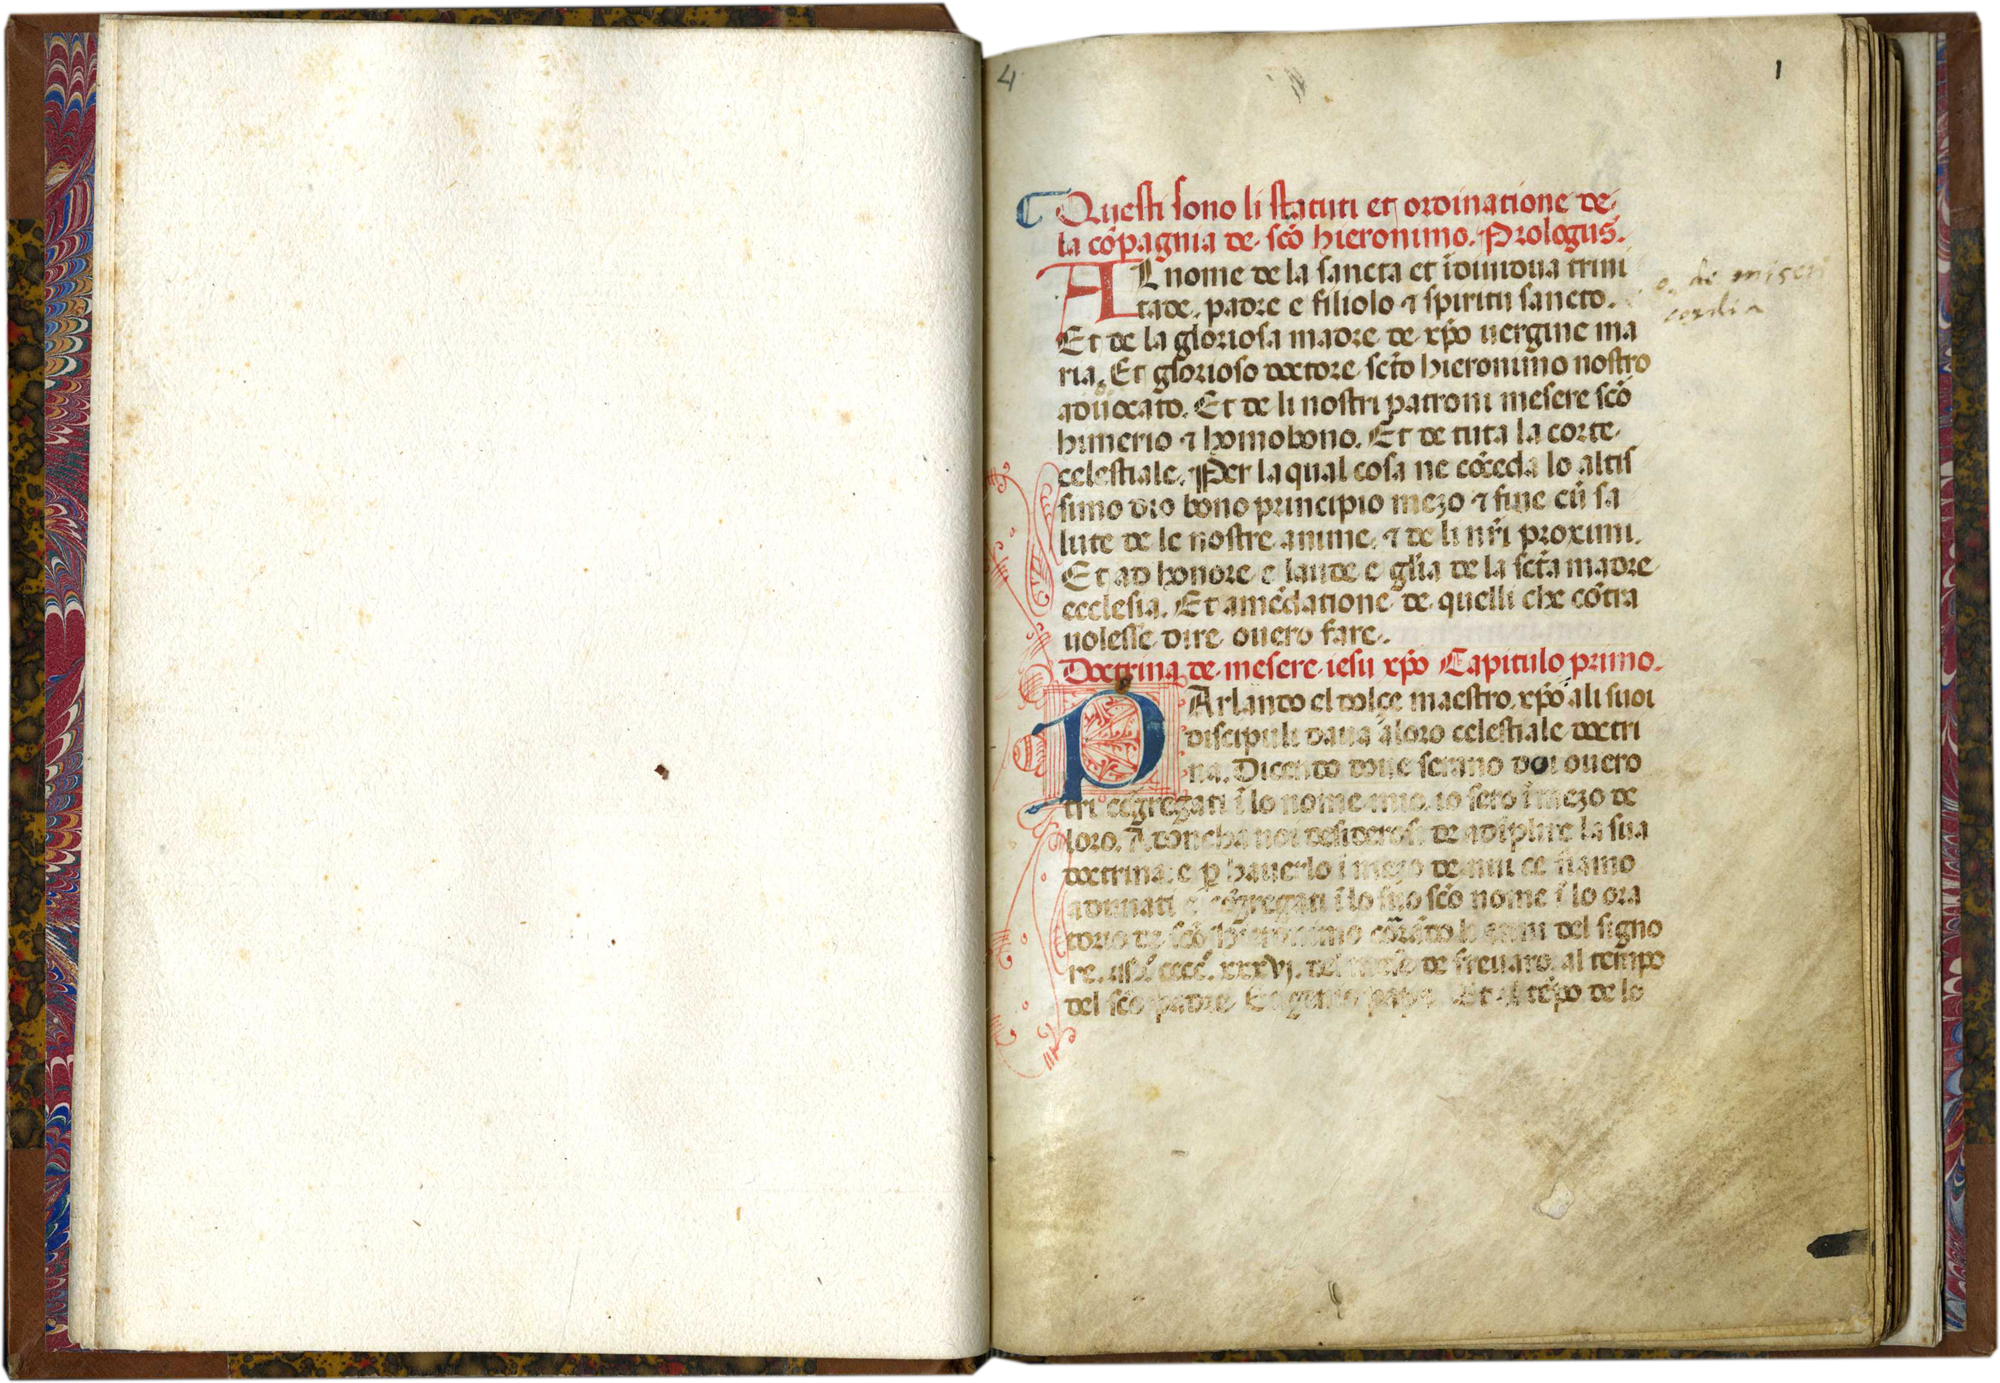 4
1
Questi sono li statuti et ordinatione de
la cōpagnia de scō hieronimo. Prologus.
AL nome de la sancta et īdiuidua trini
tade. padre e filiolo ⁊ spiritu sancto.
o de miseri
cordia
Et de la gloriosa madre de xp̄o uergine ma
ria. Et glorioso doctore sct̄o hieronimo nostro
aduocato. Et de li nostri patroni mesere scō
himerio ⁊ homobono. Et de tuta la corte
celestiale. Per la qual cosa ne cōceda lo altis
simo dio bono principio mezo ⁊ fine cū sa
lute de le nostre anime. ⁊ de li nr̄i proximi.
Et ad honore e laude e gl̄ia de la sct̄a madre
ecclesia. Et amēdatione de quelli che cōtra
uolesse dire ouero fare.
Doctrina de mesere iesu xp̄o Capitulo primo.
PArlando el dolce maestro xp̄o ali suoi
discipuli daua a loro celestiale doctri
na. Dicendo doue serano doi ouero
tri cōgregati ī lo nome mio. io sero ī mezo de
loro. Adoncha noi desiderosi de adīplire la sua
doctrina: e ꝑ hauerlo ī mezo de nui ce siamo
adunati e cōgregati ī lo suo scō nome ī lo ora
torio de scō hieronimo del signo
re. cccc. xxxvi. del mese de freuaro. al tempo
del scō padre Eugenio papa Et al tēpo de lo